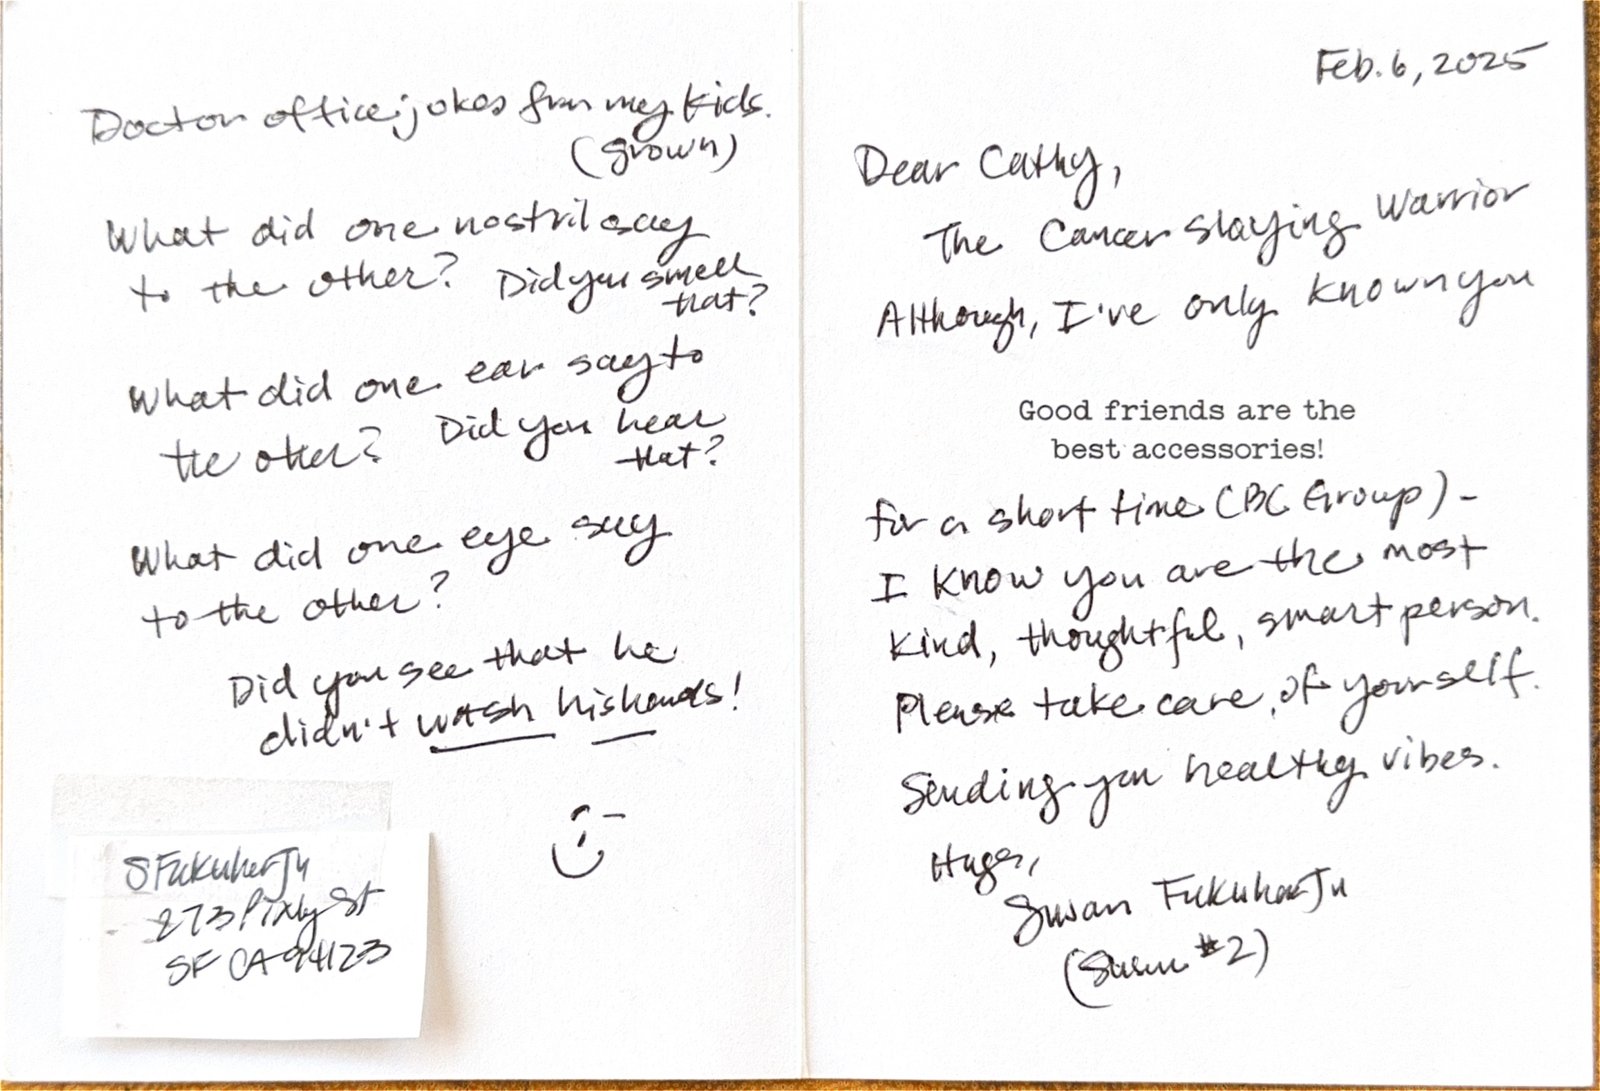 Doctor office jokes from my kids.
(grown)
What did one nostril say
to the other? Did you smell
that?
What did one ear say to
the other? Did you hear
that?
What did one eye say
to the other?
Did you see that he
didn't wash his hands!
S Fukuhara Ju
273 Pixly St
SF CA 94123
Feb. 6, 2025
Dear Cathy,
The Cancer Slaying Warrior
Although, I've only known you
Good friends are the
best accessories!
for a short time (BC Group) -
I know you are the most
kind, thoughtful, smart person.
Please take care of yourself.
Sending you healthy vibes.
Hugs,
Susan Fukuhara Ju
(Susan #2)